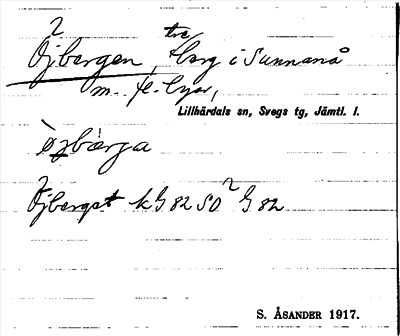 Öjbergen, tre berg i Sunnanå
m. fl. byar,
Lillhärdals sn, Svegs tg, Jämtl. l.
òjbærja
Öjberget kG 82 SO G 82
S. ÅSANDER 1917.